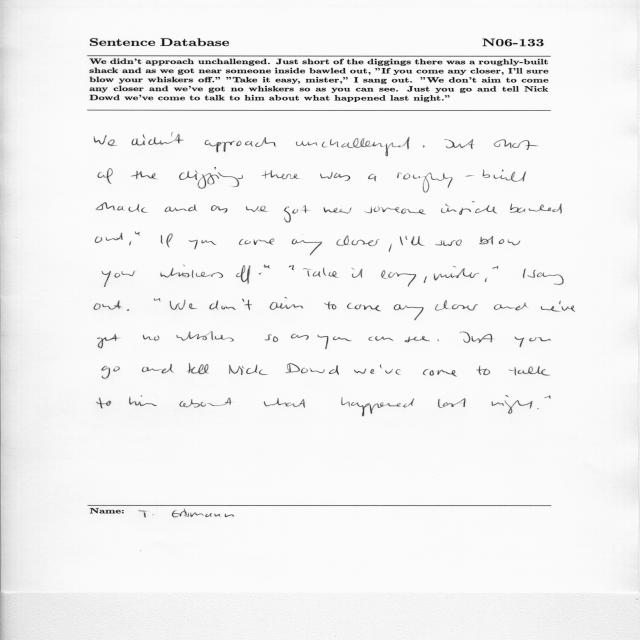 Sentence Database N06-133
We didn't approach unchallenged. Just short of the diggings there was a roughly-built
shack and as we got near someone inside bawled out, "If you come any closer, I'll sure
blow your whiskers off." "Take it easy, mister," I sang out. "We don't aim to come
any closer and we've got no whiskers so as you can see. Just you go and tell Nick
Dowd we've come to talk to him about what happened last night."
We didn't approach unchallenged. Just short
of the diggings there was a roughly-built
shack and as we got near someone inside bawled
out, "If you come any closer, I'll sure blow
your whiskers off." "Take it easy, mister," I sang
out. "We don't aim to come any closer and we've
got no whiskers so as you can see. Just you
go and tell Nick Dowd we've come to talk
to him about what happened last night."
Name: T. Erdmann